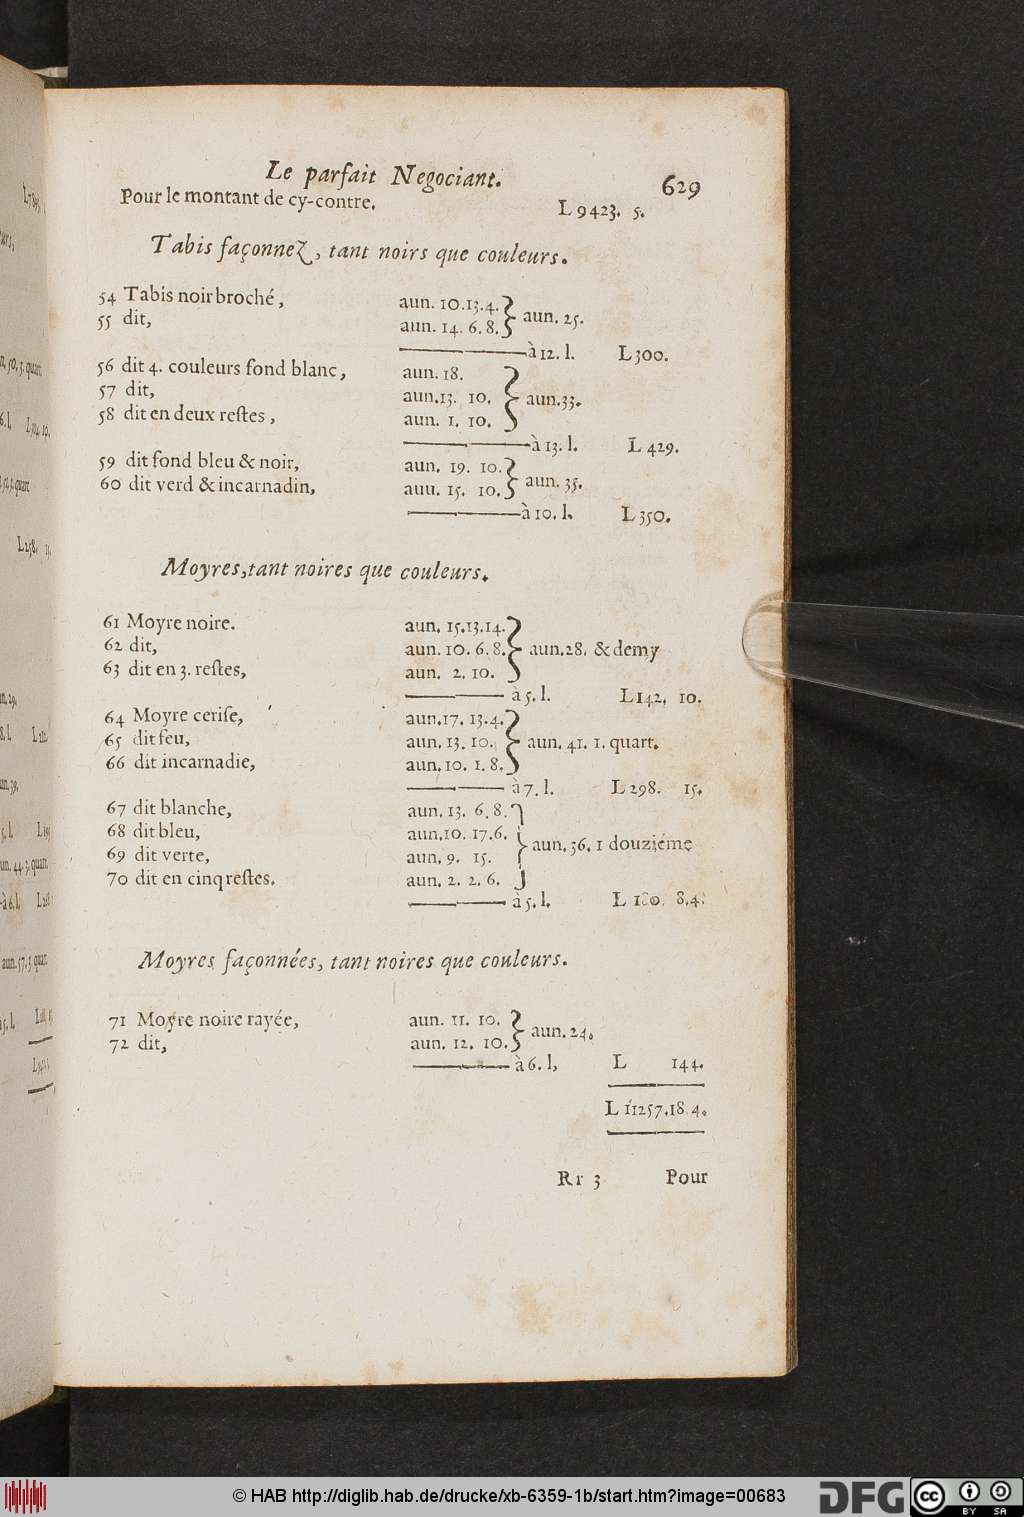 Le parfait Negociant. 629
Pour le montant de cy-contre. L 9423. 5.
Tabis façonnez, tant noirs que couleurs.
54 Tabis noir broché, aun. 10.13.4.
55 dit, aun. 14. 6. 8. } aun. 25.
à 12. l. L 300.
56 dit 4. couleurs fond blanc, aun. 18.
57 dit, aun. 13. 10. } aun. 33.
58 dit en deux restes, aun. 1. 10.
à 13. l. L 429.
59 dit fond bleu & noir, aun. 19. 10.
60 dit verd & incarnadin, auu. 15. 10. } aun. 35.
à 10. l. L 350.
Moyres, tant noires que couleurs.
61 Moyre noire. aun. 15.13.14.
62 dit, aun. 10. 6. 8. } aun. 28. & demy
63 dit en 3. restes, aun. 2. 10.
à 5. l. L 142. 10.
64 Moyre cerise, aun. 17. 13. 4.
65 dit feu, aun. 13. 10. } aun. 41. 1. quart.
66 dit incarnadie, aun. 10. 1. 8.
à 7. l. L 298. 15.
67 dit blanche, aun. 13. 6. 8.
68 dit bleu, aun. 10. 17. 6. } aun. 36. 1 douziéme
69 dit verte, aun. 9. 15.
70 dit en cinq restes. aun. 2. 2. 6.
à 5. l. L 180. 8. 4.
Moyres façonnées, tant noires que couleurs.
71 Moyre noire rayée, aun. 11. 10.
72 dit, aun. 12. 10. } aun. 24.
à 6. l. L 144.
L 11257. 18. 4.
Rr 3 Pour
© HAB http://diglib.hab.de/drucke/xb-6359-1b/start.htm?image=00683
DFG
cc BY SA